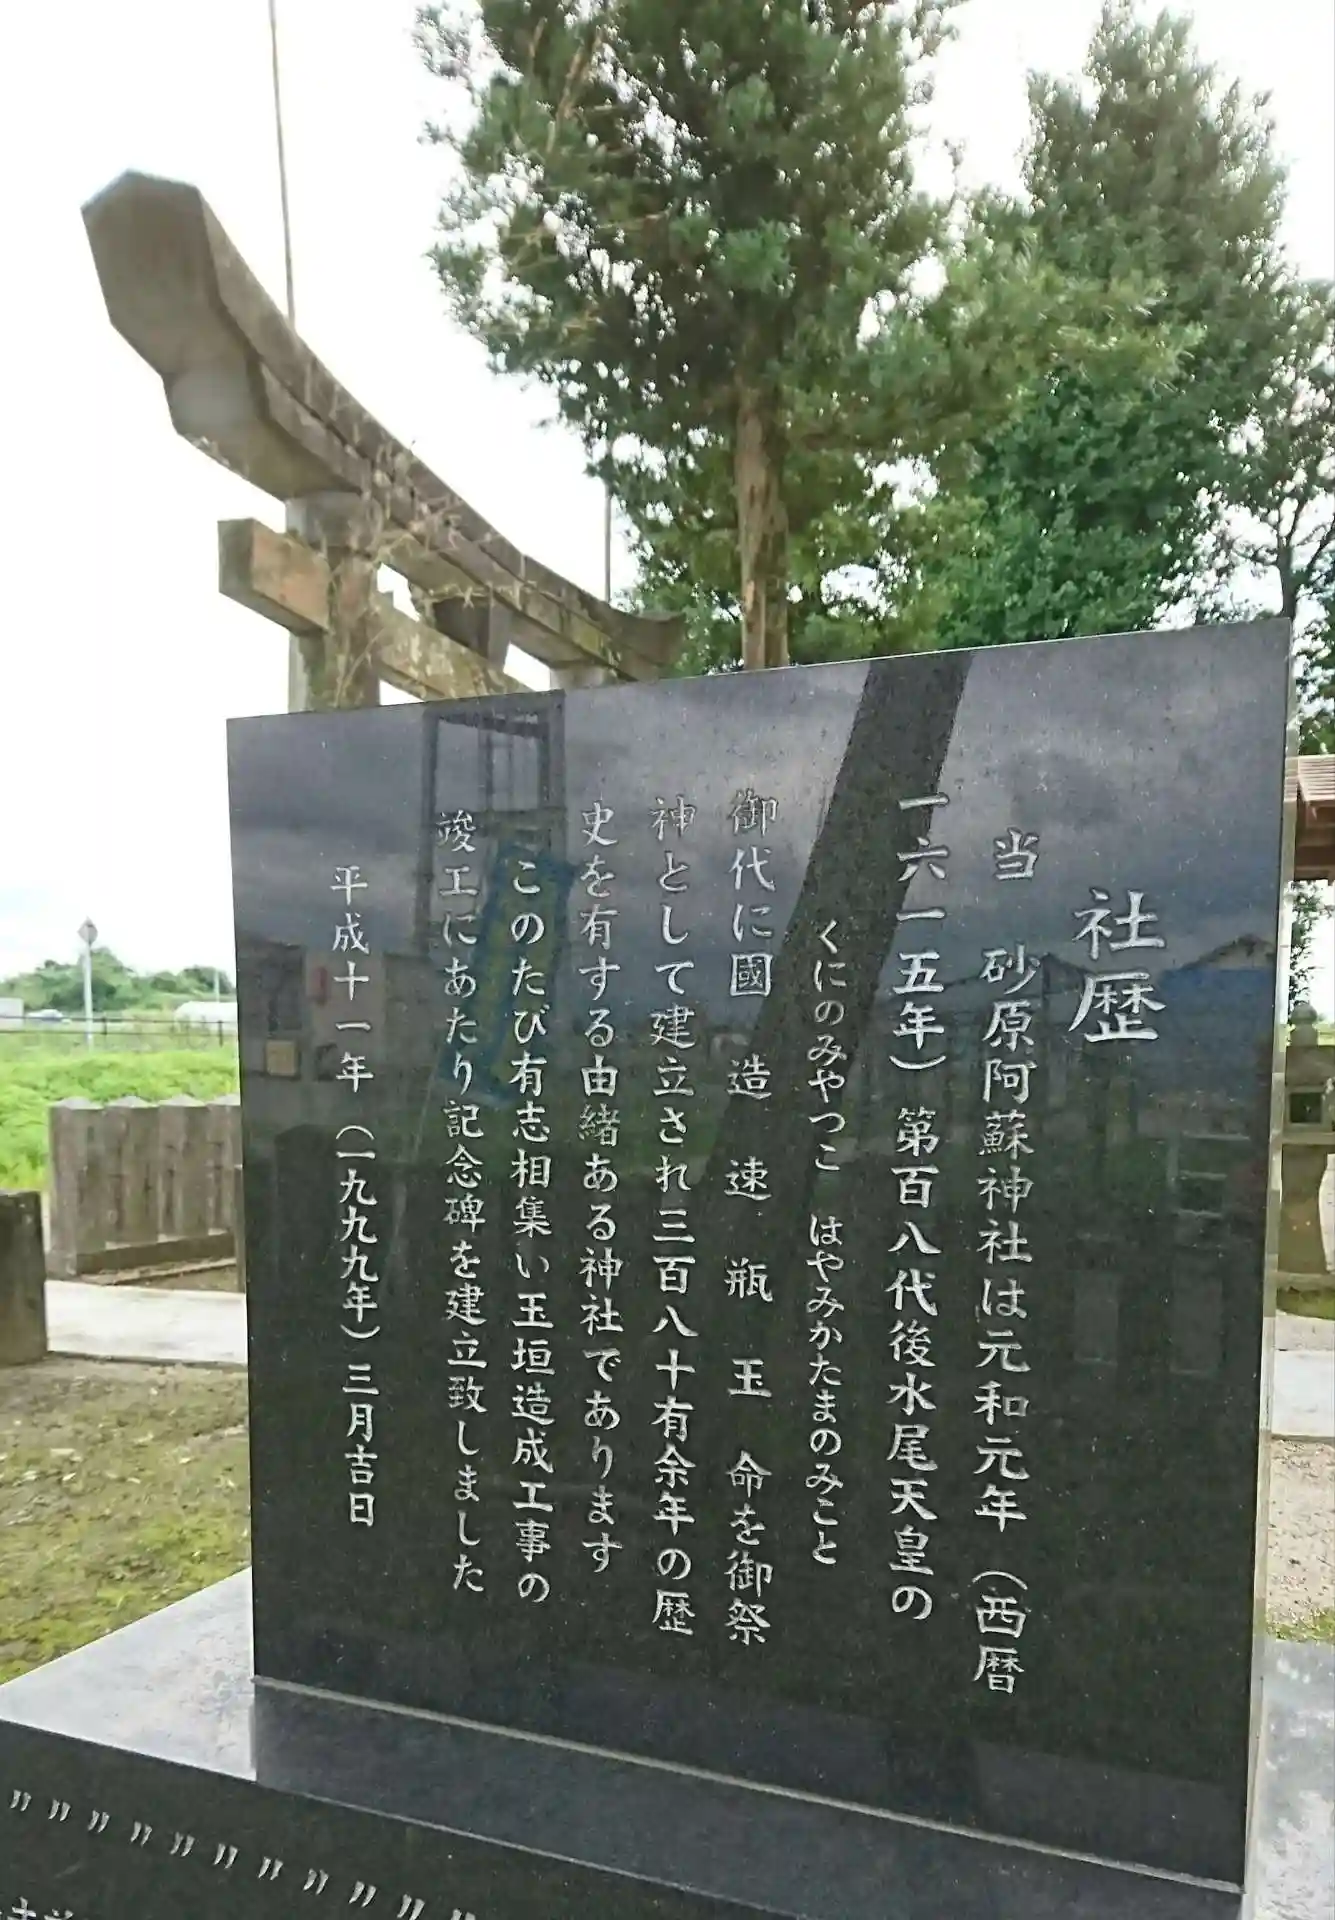 社歴
当 砂原阿蘇神社は元和元年（西暦
一六一五年）第百八代後水尾天皇の
くにのみやつこ はやみかたまのみこと
御代に國 造 速 瓶 玉 命を御祭
神として建立され三百八十有余年の歴
史を有する由緒ある神社であります
このたび有志相集い玉垣造成工事の
竣工にあたり記念碑を建立致しました
平成十一年（一九九九年）三月吉日
〃〃〃〃〃〃〃〃〃〃〃〃